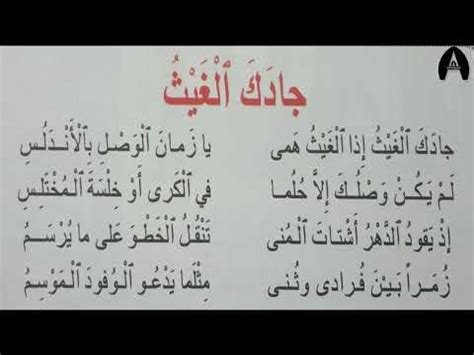 جادَكَ ٱلْغَيْثُ
جادَكَ ٱلْغَيْثُ إِذا ٱلْغَيْثُ هَمى يا زَمانَ ٱلْوَصْلِ بِٱلْأَنْدَلُسِ
لَمْ يَكُنْ وَصْلُكَ إِلاَّ حُلُما في ٱلْكَرى أَوْ خِلْسَةَ ٱلْمُخْتَلِسِ
إِذْ يَقودُ ٱلدَّهْرُ أَشْتاتَ ٱلْمُنى تَنْقُلُ ٱلْخَطْوَ عَلى ما يُرْسَمُ
زُمَراً بَيْنَ فُرادى وَثُنى مِثْلَما يَدْعُو ٱلْوُفودَ ٱلْمَوْسِمُ